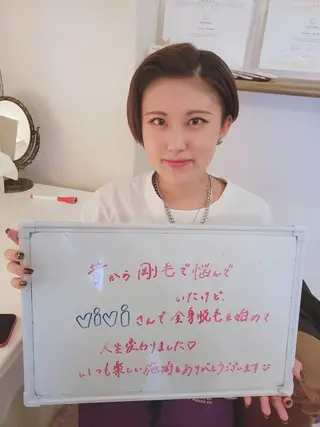 昔から剛毛で悩んで
いたけど、
ViViさんで全身脱毛を始めて
人生変わりました♡
いつも楽しい施術をありがとうございます